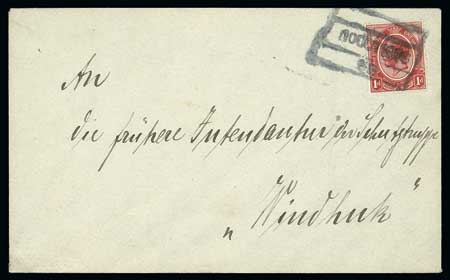 1d 1d
An
die frühere Intendantur der Schutztruppe
"Windhuk"